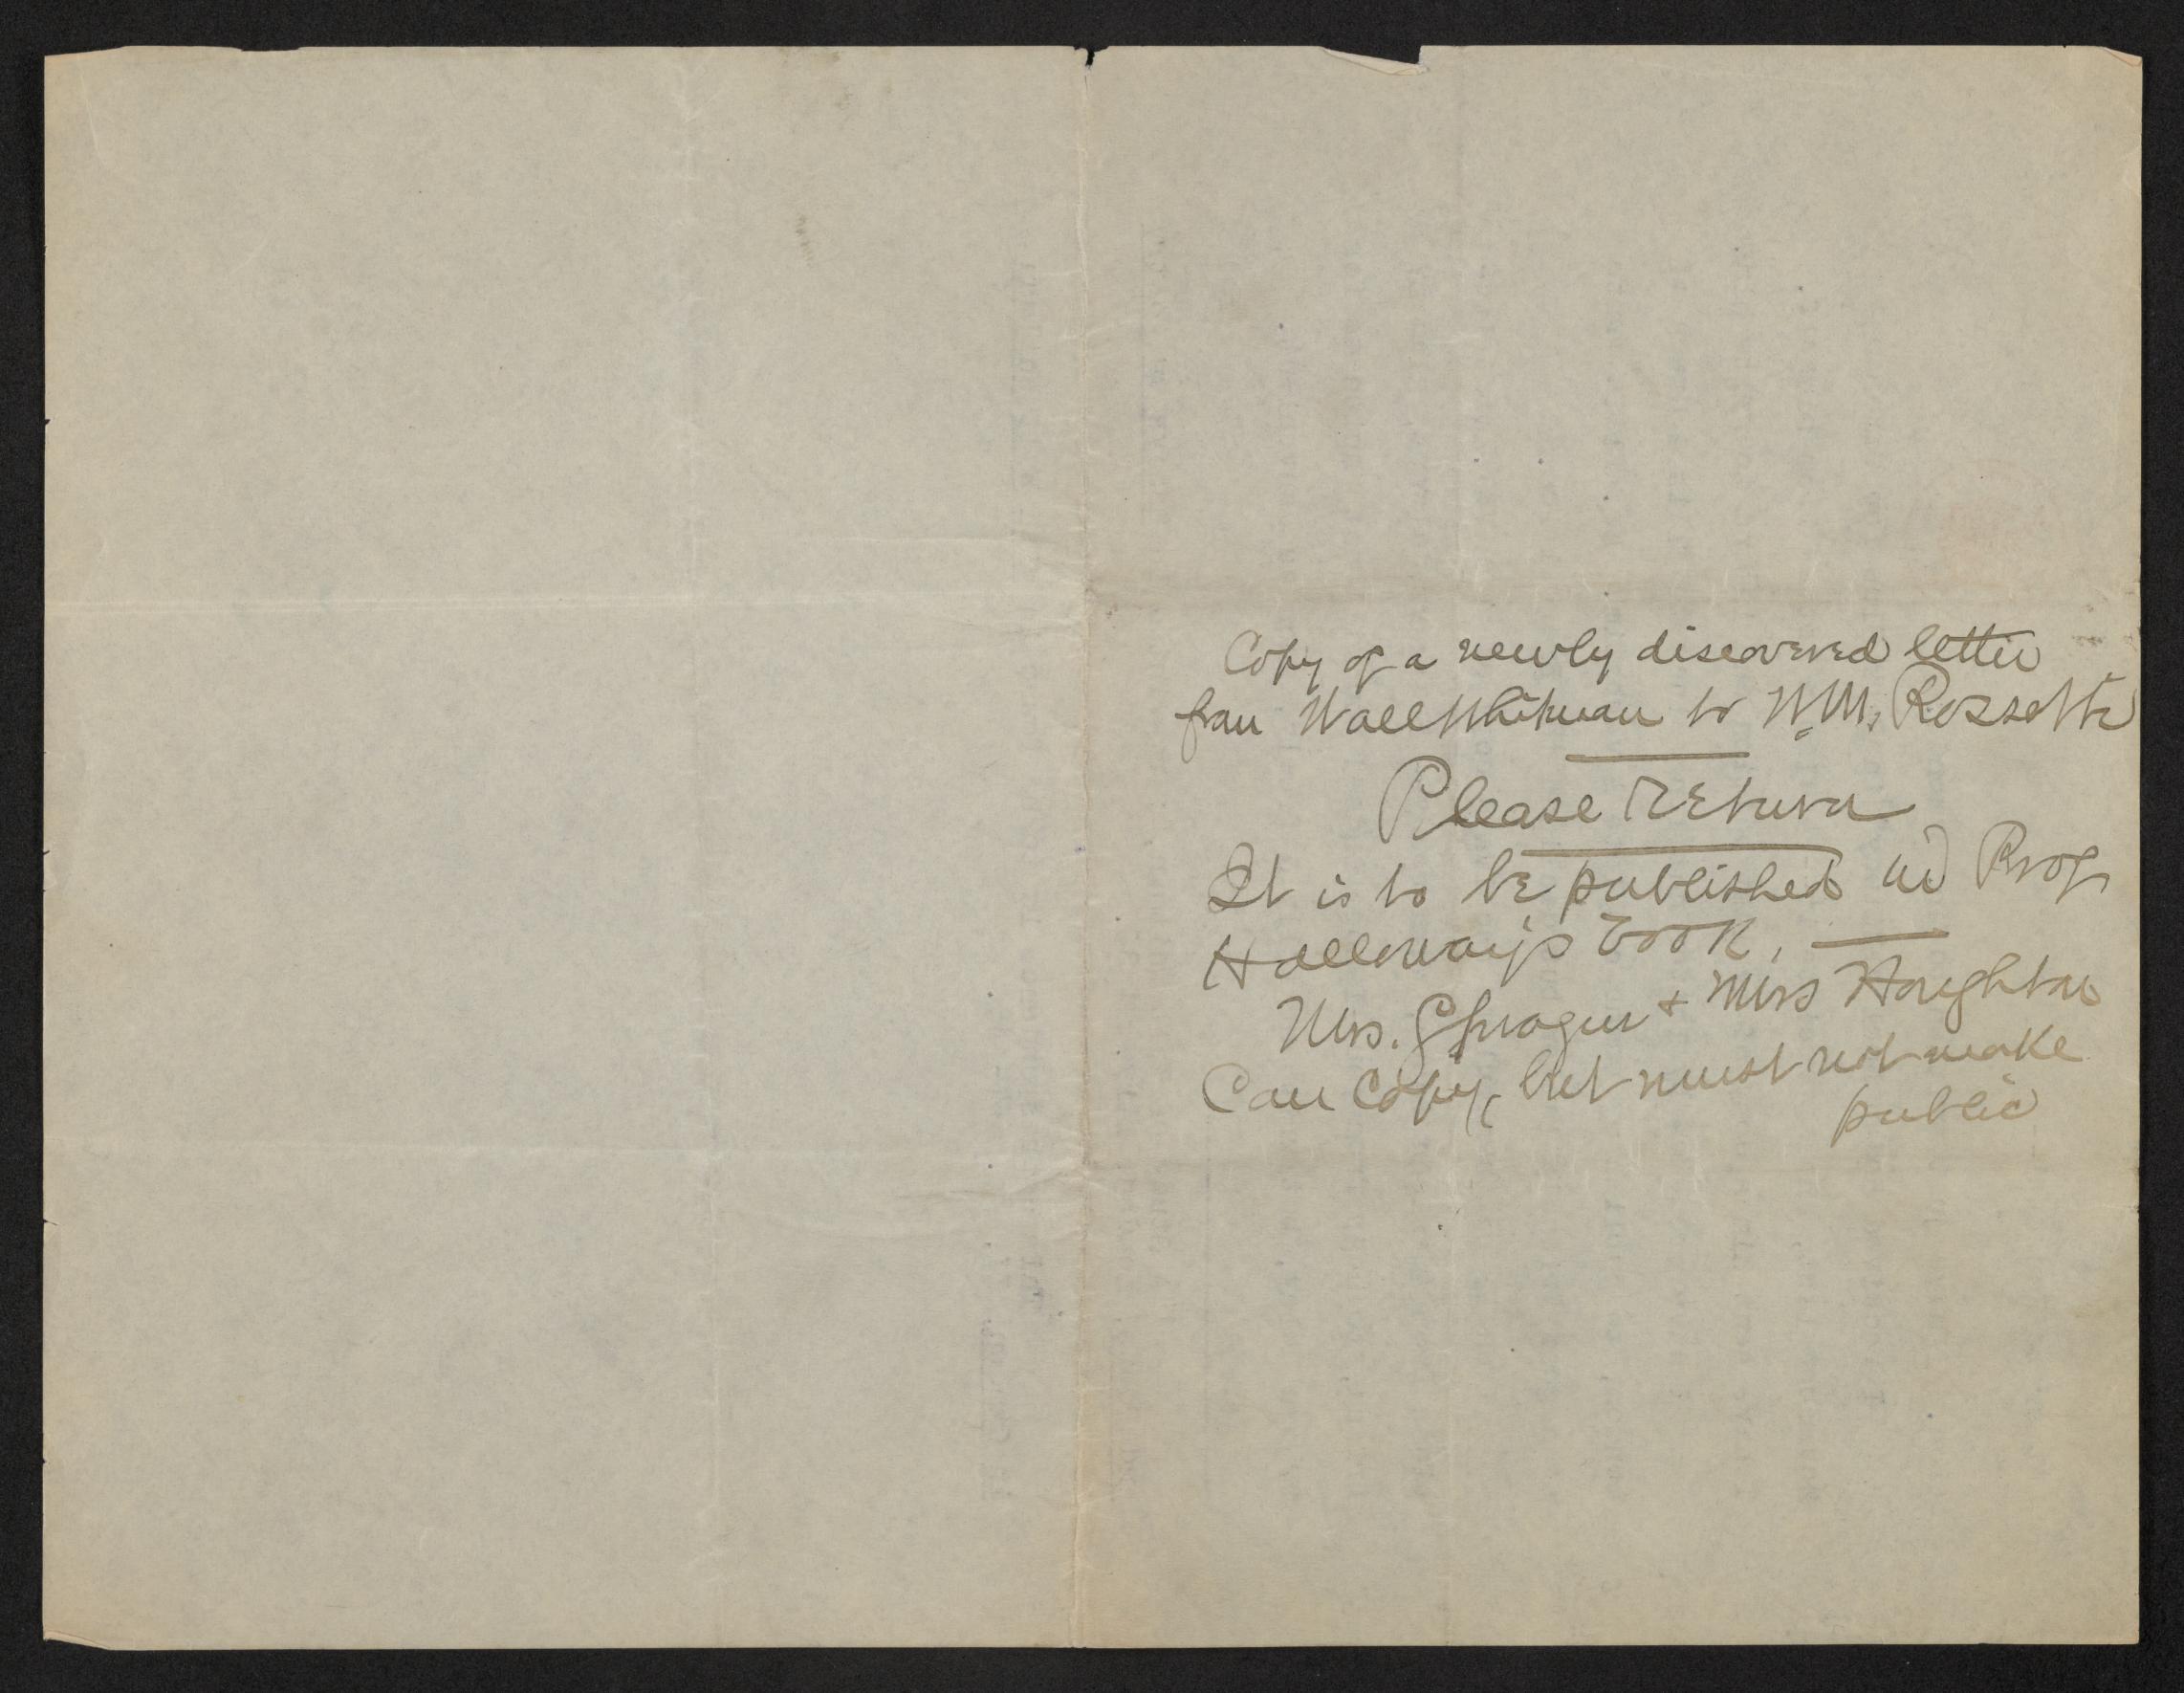 Copy of a newly discovered letter
from Walt Whitman to W.M. Rossetti
Please return
It is to be published in Prof
Holloway's book.
Mrs. Sprague + Miss Houghton
Can copy, but must not make
public